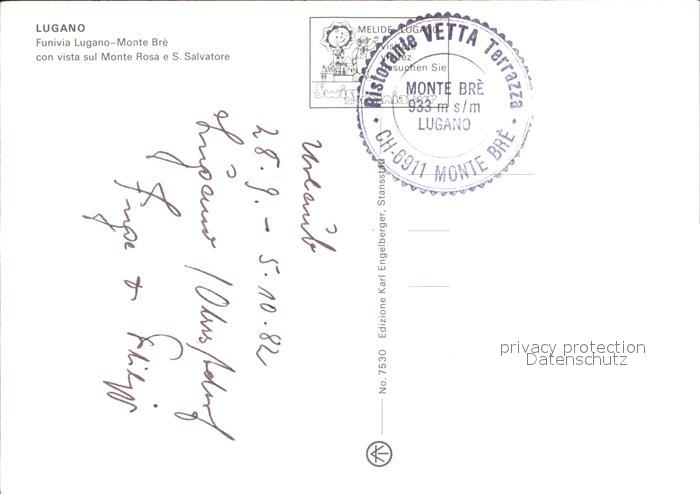 LUGANO
Funivia Lugano–Monte Brè
con vista sul Monte Rosa e S. Salvatore
MELIDE LUGANO
visitez
besuchen Sie
Swissminiatur
Ristorante VETTA Terrazza
MONTE BRÈ
933 m s/m
LUGANO
• CH-6911 MONTE BRÈ •
Urlaub
28.9. – 5.10.82
Lugano /
Inge + Philipp
No. 7530 Edizione Karl Engelberger, Stansstad
privacy protection
Datenschutz